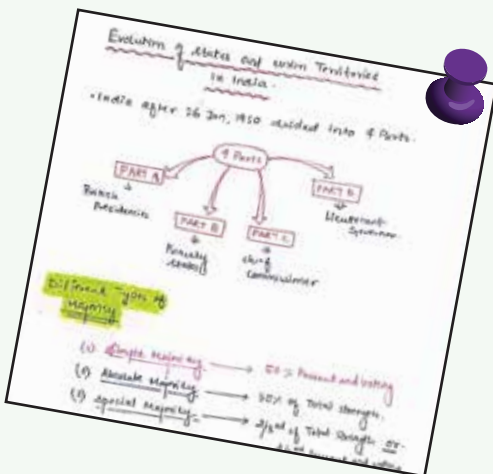 Evolution of States and Union Territories
in India.
• India after 26 Jan, 1950 divided into 4 Parts.
4 Parts
PART A
British
Presidencies
PART B
Princely
States
PART C
Chief
Commissioner
PART D
Lieutenant
Governor
Different Types of
Majority
Simple Majority → 50% Present and voting
Absolute Majority → 50% of Total strength.
Special Majority → 2/3rd of Total Strength or